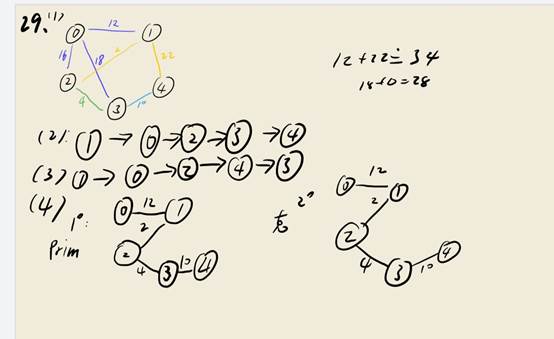 29.(1)
0 12 1
16 18 2 22
2 3 4
4 10
12+22=34
18+10=28
(2): 1 → 0 → 2 → 3 → 4
(3) 1 → 0 → 2 → 4 → 3
(4) 1°: 0 12 1
2
Prim 2 4 3 10 4
2° 0 12 1
2
2 4 3 10 4